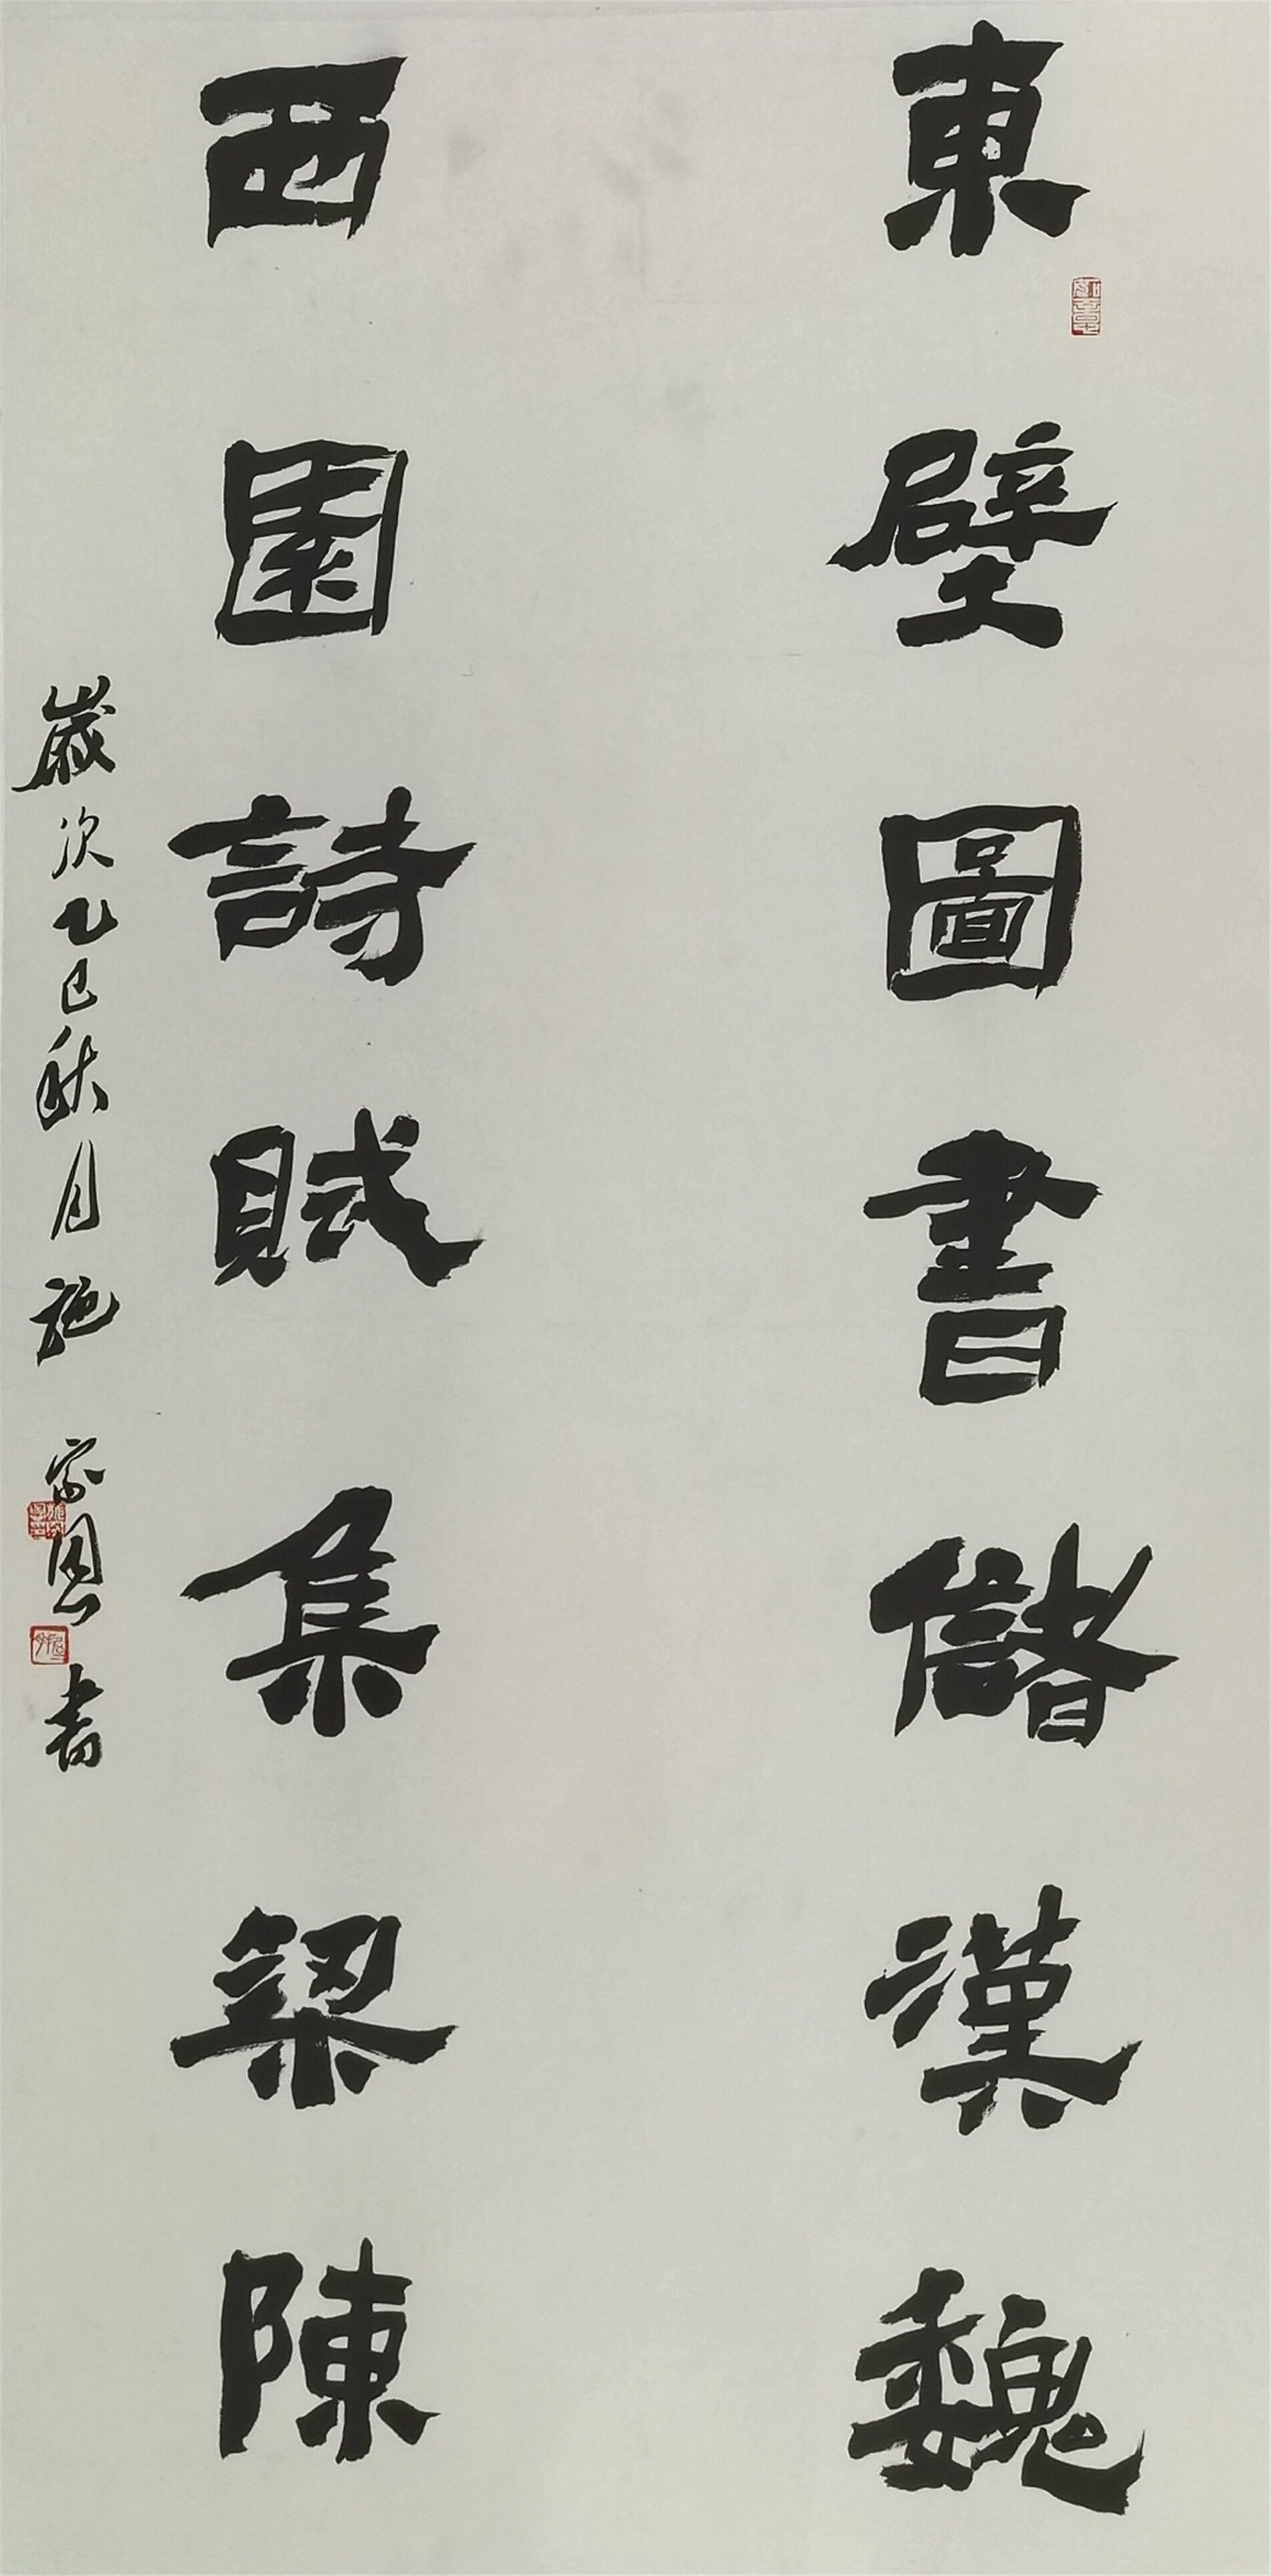 東壁圖書儲漢魏
西園詩賦集梁陳
歲次乙巳秋月施宗恩書